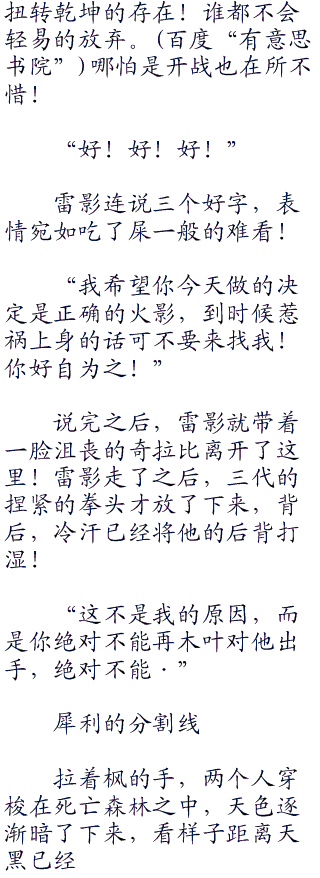 扭转乾坤的存在！谁都不会
轻易的放弃。(百度“有意思
书院”)哪怕是开战也在所不
惜！
“好！好！好！”
雷影连说三个好字，表
情宛如吃了屎一般的难看！
“我希望你今天做的决
定是正确的火影，到时候惹
祸上身的话可不要来找我！
你好自为之！”
说完之后，雷影就带着
一脸沮丧的奇拉比离开了这
里！雷影走了之后，三代的
捏紧的拳头才放了下来，背
后，冷汗已经将他的后背打
湿！
“这不是我的原因，而
是你绝对不能再木叶对他出
手，绝对不能·”
犀利的分割线
拉着枫的手，两个人穿
梭在死亡森林之中，天色逐
渐暗了下来，看样子距离天
黑已经